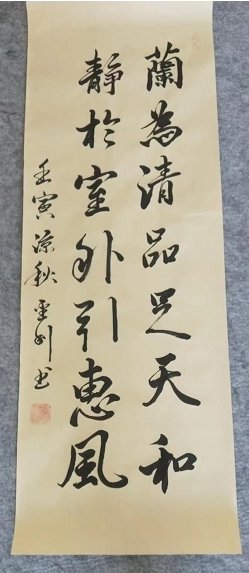 蘭為清品足天和
靜於室外引惠風
壬寅涼秋
書